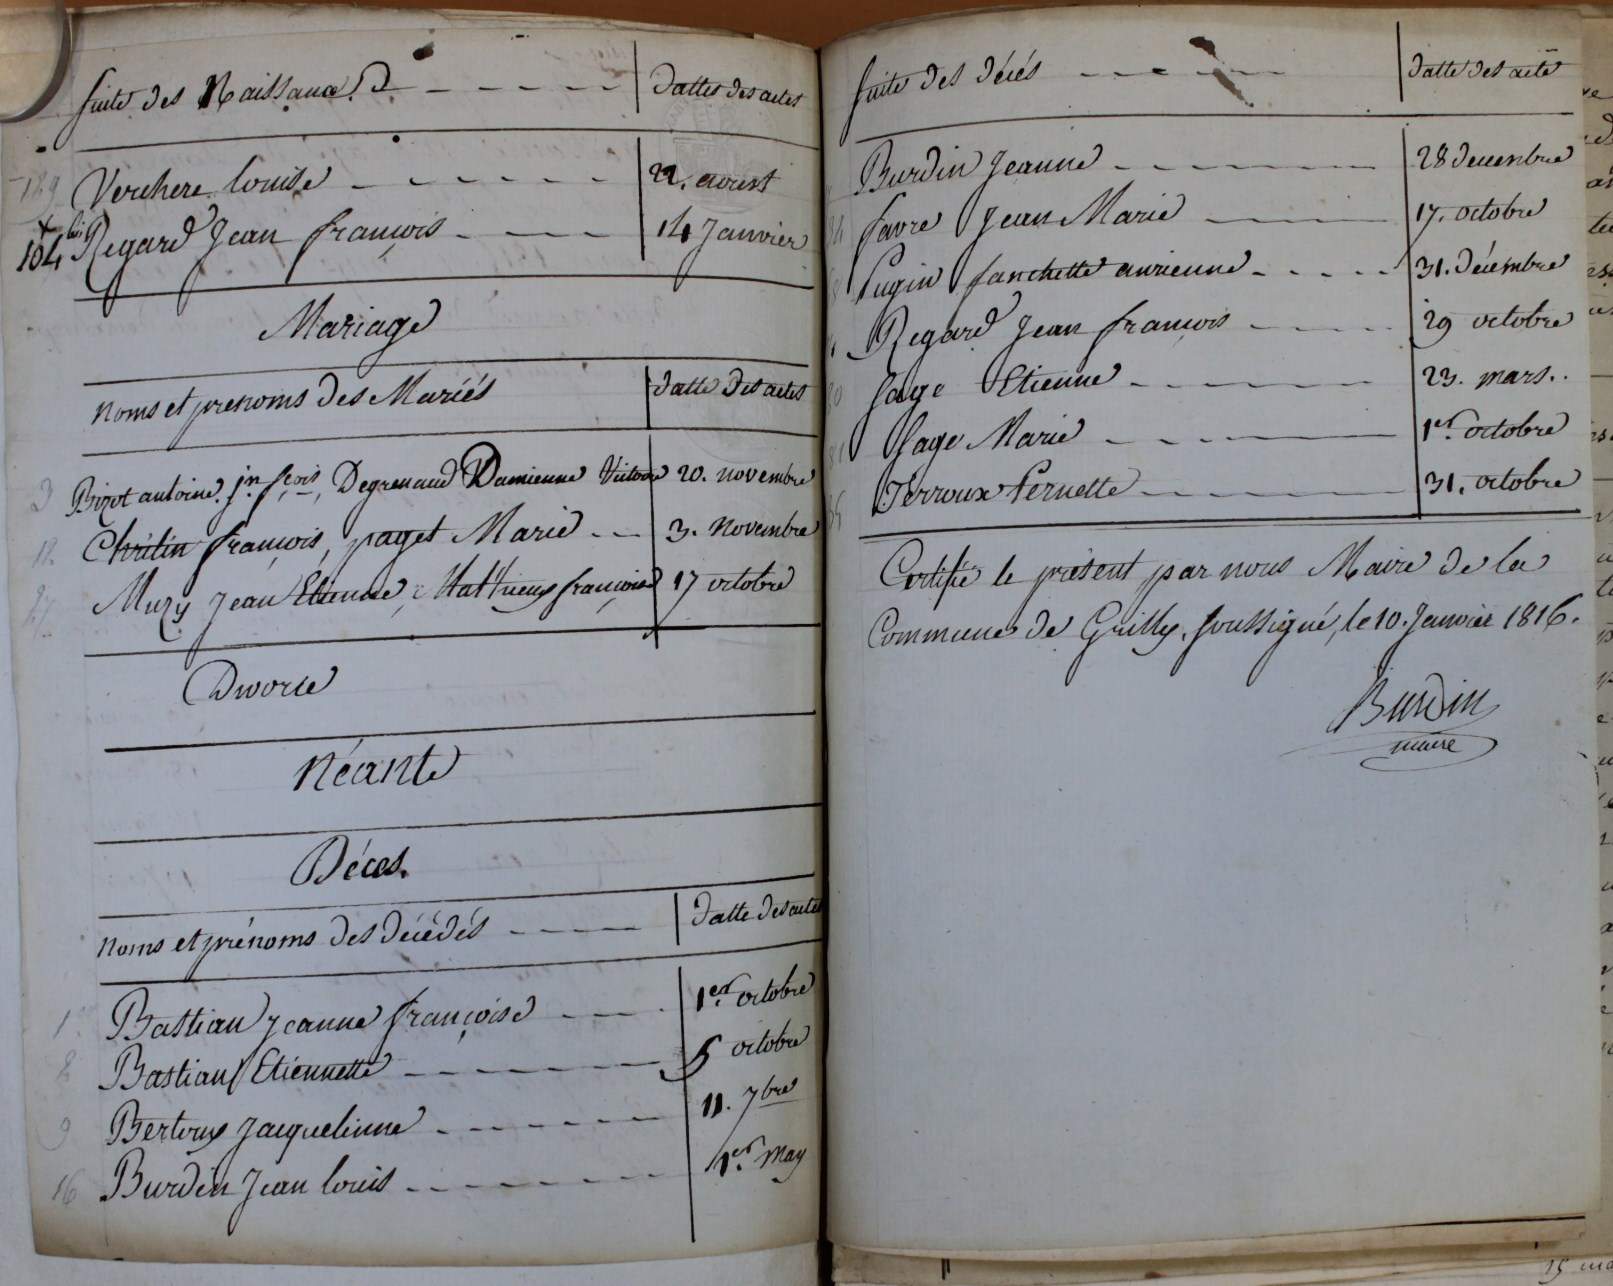 Suite des Naissance. Dattes des actes
189 Verchere louise 22. aoust
104 bis Regard Jean françois 14 Janvier
Mariage
Noms et prenoms des Mariés Datte des actes
Bizot antoine jn. fcois, Degrenaud Damienne Victoire 20. novembre
18. Chrétin françois, paget Marie 3. Novembre
Muzy Jean Etienne, Mathieux françoise 17 octobre
Divorce
Néante
Déces.
Noms et prénoms des décédés Datte des actes
1 Bastian Jeanne françoise 1er. octobre
8 Bastian Etiennette 5 octobre
9 Bertoux Jacquelinne 11. 7bre
16 Burdin Jean louis 1er. May
Suite des décés Datte des acte
Burdin Jeanne 28 decembre
favre Jean Marie 17. octobre
Pugin fanchette aurienne 31. Décembre
Regard Jean françois 29 octobre
Sage Etienne 23. mars.
Sage Marie 1er. octobre
Terroux Pernette 31. octobre
Certifié le présent par nous Maire de la
Commune de Grilly, soussigné, le 10. Janvier 1816.
Burdin
maire